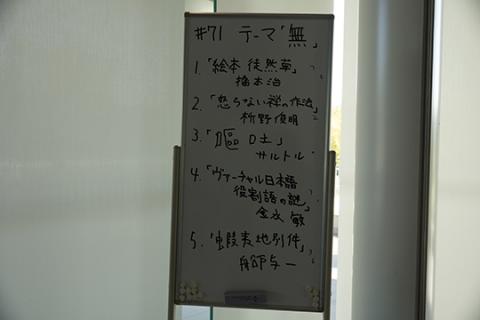 #71 テーマ「無」
1.「絵本 徒然草」
橋本治
2.「怒らない禅の作法」
枡野俊明
3.「嘔吐」
サルトル
4.「ヴァーチャル日本語
役割語の謎」
金水 敏
5.「蝦夷地別件」
船戸与一